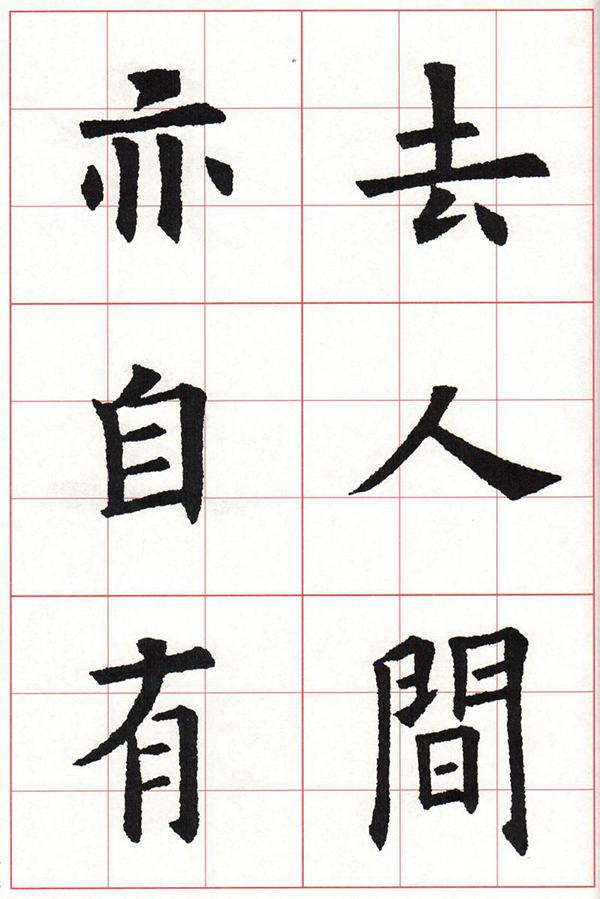 去人間
亦自有